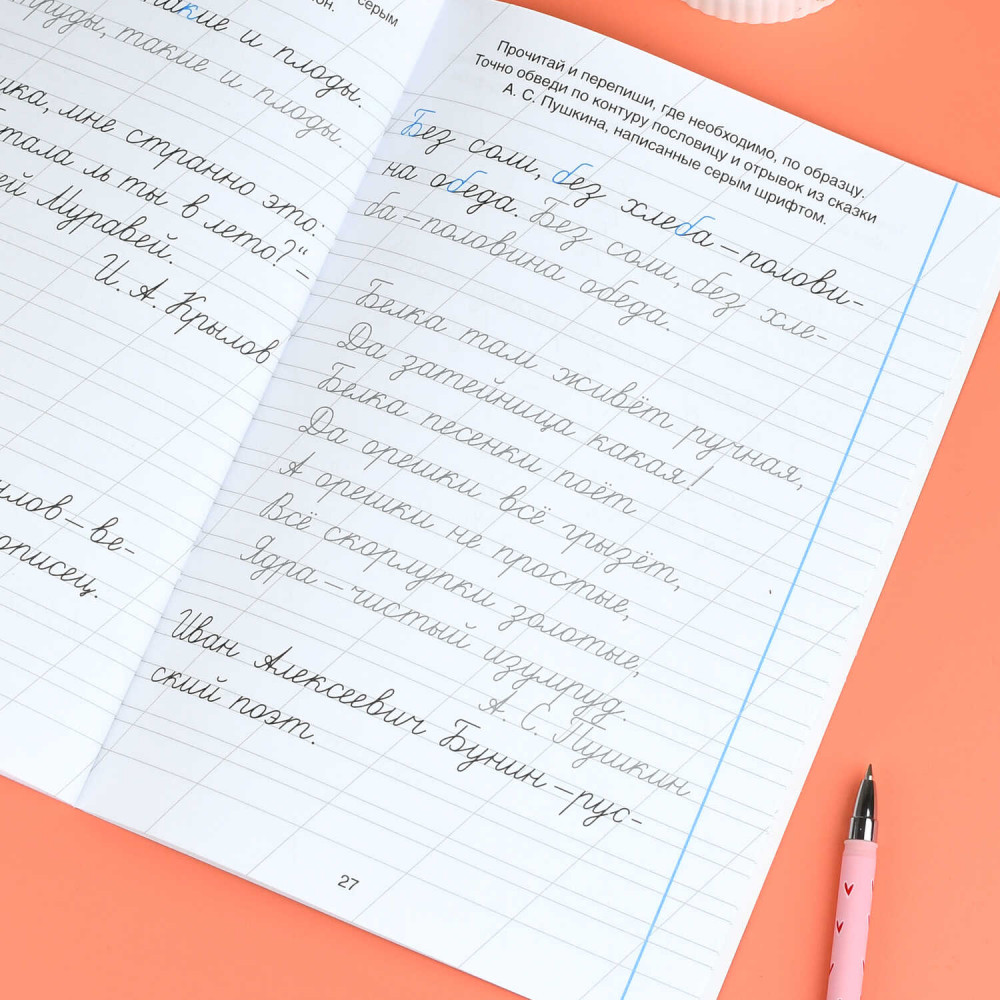 серым
такие и плоды.
труды, такие и плоды.
мне странно это:
ль ты в лето?“–
Муравей.
И. А. Крылов
ве-
Прочитай и перепиши, где необходимо, по образцу.
Точно обведи по контуру пословицу и отрывок из сказки
А. С. Пушкина, написанные серым шрифтом.
Без соли, без хлеба – полови-
на обеда. Без соли, без хле-
ба – половина обеда.
Белка там живёт ручная,
Да затейница какая!
Белка песенки поёт
Да орешки всё грызёт,
А орешки не простые,
Всё скорлупки золотые,
Ядра – чистый изумруд.
А. С. Пушкин
Иван Алексеевич Бунин – рус-
ский поэт.
27